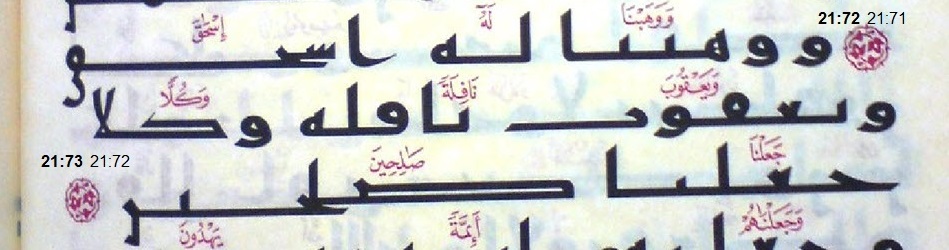 21:72 21:71
وَوَهَبْنَا لَهُ إِسْحَٰقَ
ووهبنا له اسحق
وَيَعْقُوبَ نَافِلَةً وَكُلًّا
ويعقوب نافله وكلا
21:73 21:72
جَعَلْنَا صَٰلِحِينَ
جعلنا صلحين
وَجَعَلْنَٰهُمْ أَئِمَّةً يَهْدُونَ